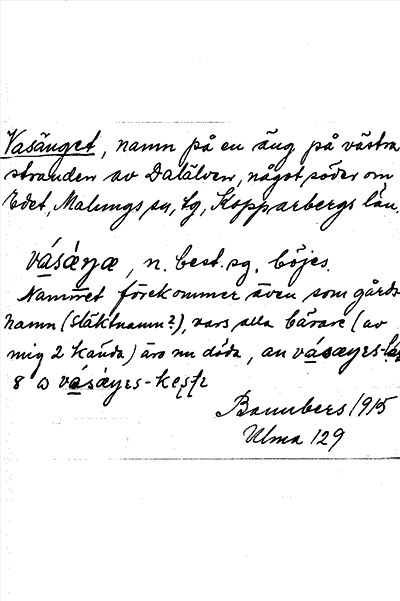 Vasänget, namn på en äng på västra
stranden av Dalälven, något söder om
Edet, Malungs sn, lg, Kopparbergs län.
vásæŋæ, n. best. sg. böjes.
Namnet förekommer även som gårds-
namn (släktnamn?), vars alla bärare (av
mig 2 kända) äro nu döda, an
8
Bannbers 1915
Ulma 129